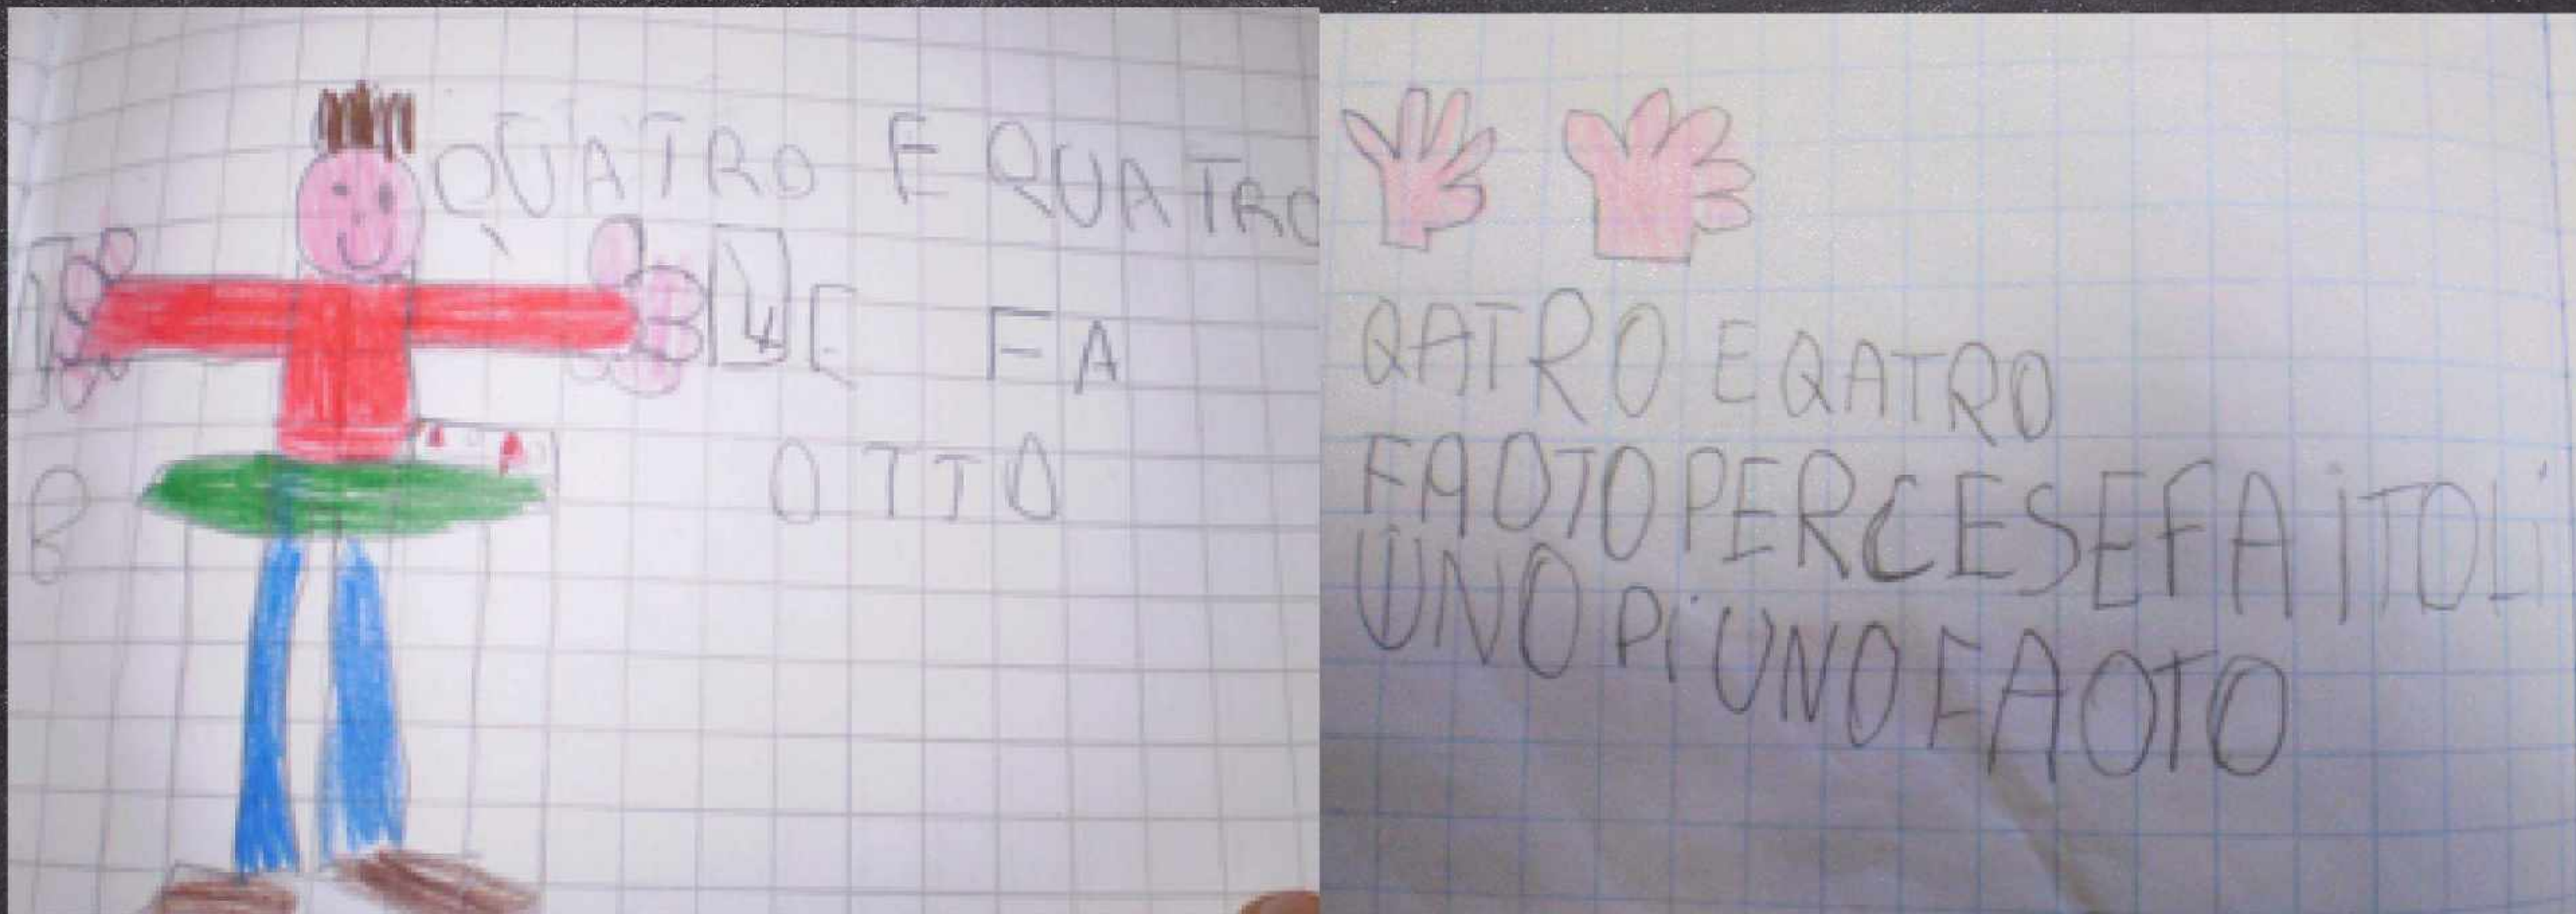 QUATRO E QUATRO
4
FA
OTTO
QATRO E QATRO
FAOTO PERCE SE FA I TOLI
UNO PI UNO FA OTO